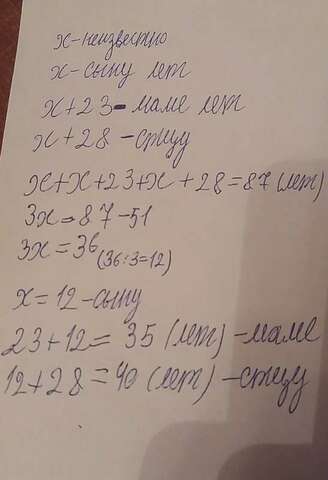 х-неизвестно
х-сыну лет
х+23-маме лет
х+28-отцу
х+х+23+х+28=87(лет)
3х=87-51
3х=36(36:3=12)
х=12-сыну
23+12=35(лет)-маме
12+28=40(лет)-отцу